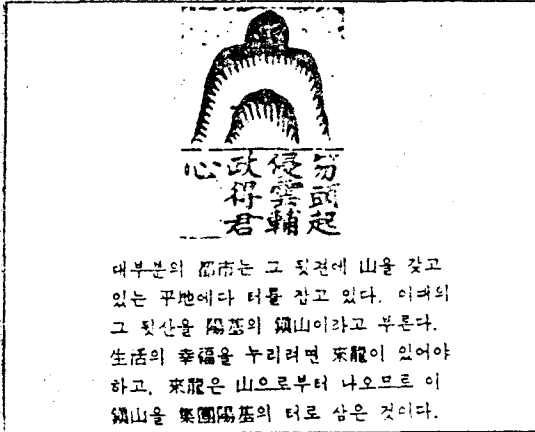 笏頭起
侵雲輔
政得君
心
대부분의 都市는 그 뒷켠에 山을 갖고
있는 平地에다 터를 잡고 있다. 이때의
그 뒷산을 陽基의 鎭山이라고 부른다.
生活의 幸福을 누리려면 來龍이 있어야
하고, 來龍은 山으로부터 나오므로 이
鎭山을 集團陽基의 터로 삼은 것이다.